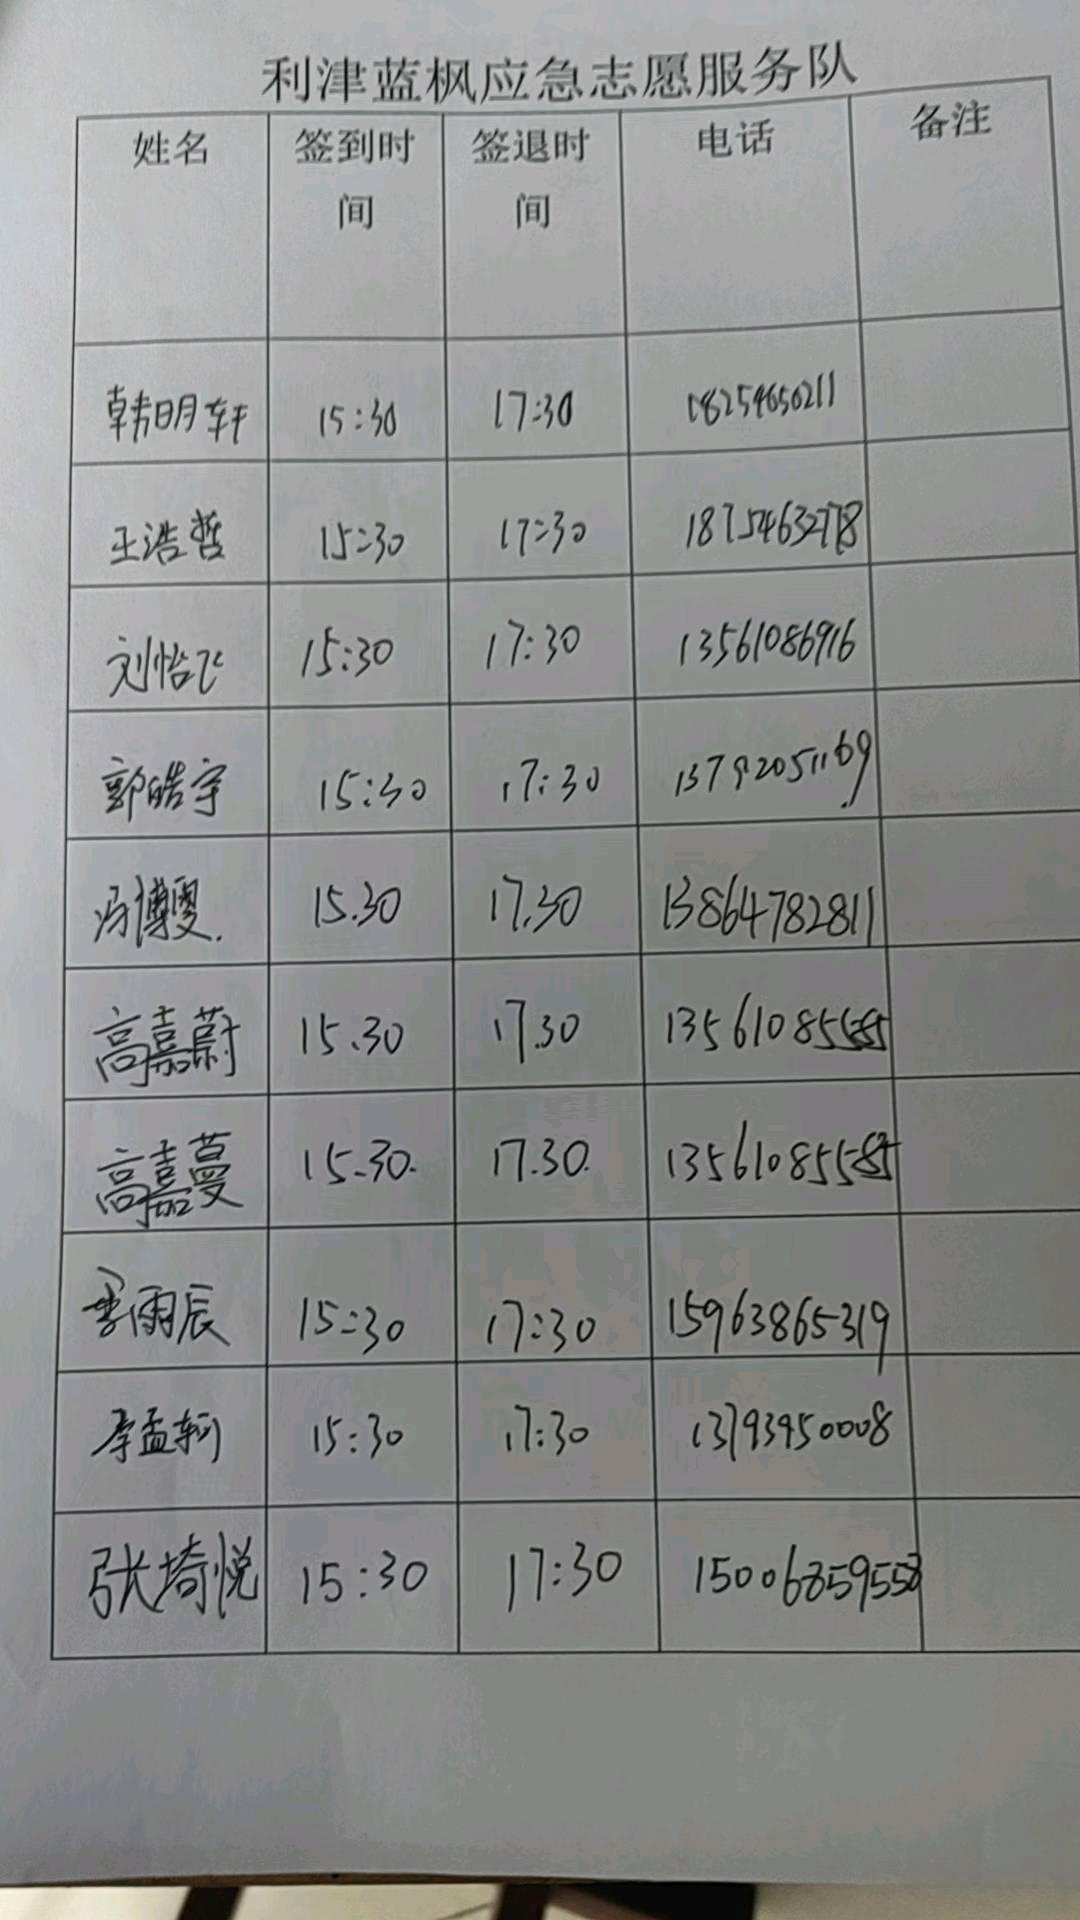 利津蓝枫应急志愿服务队
姓名 签到时间 签退时间 电话 备注
韩明轩 15:30 17:30 18254650211
王浩哲 15:30 17:30 18754632778
刘怡飞 15:30 17:30 13561086916
郭皓宇 15:30 17:30 13792051169
冯博雯. 15.30 17.30 13864782811
高嘉蔚 15.30 17.30 13561085585
高嘉蔓 15.30. 17.30. 13561085585
李雨辰 15:30 17:30 15963865319
李孟轲 15:30 17:30 13793950008
张埼悦 15:30 17:30 15006859558